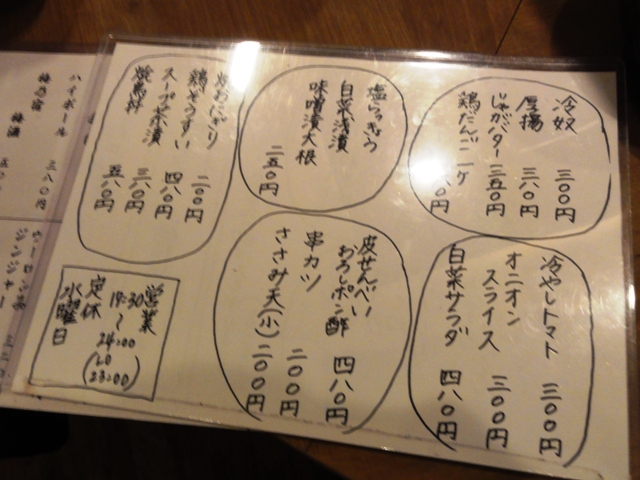 冷奴 三〇〇円
厚揚 三八〇円
じゃがバター 三五〇円
鶏だんご二ケ 〇円
塩らっきょう
白菜浅漬
味噌漬大根
二五〇円
おにぎり 二〇〇円
鶏ぞうすい 四八〇円
スープ茶漬 三八〇円
焼鳥丼 五八〇円
冷やしトマト 三〇〇円
オニオン
スライス 三〇〇円
白菜サラダ 四八〇円
皮せんべい
おろしポン酢 四八〇円
串カツ 二〇〇円
ささみ天(小) 二〇〇円
営業
17:30
〜
24:00
(LO
23:00)
定休
水曜日
ハイボール 三八〇円
梅乃宿
梅酒
ウーロン茶
ジンジャー